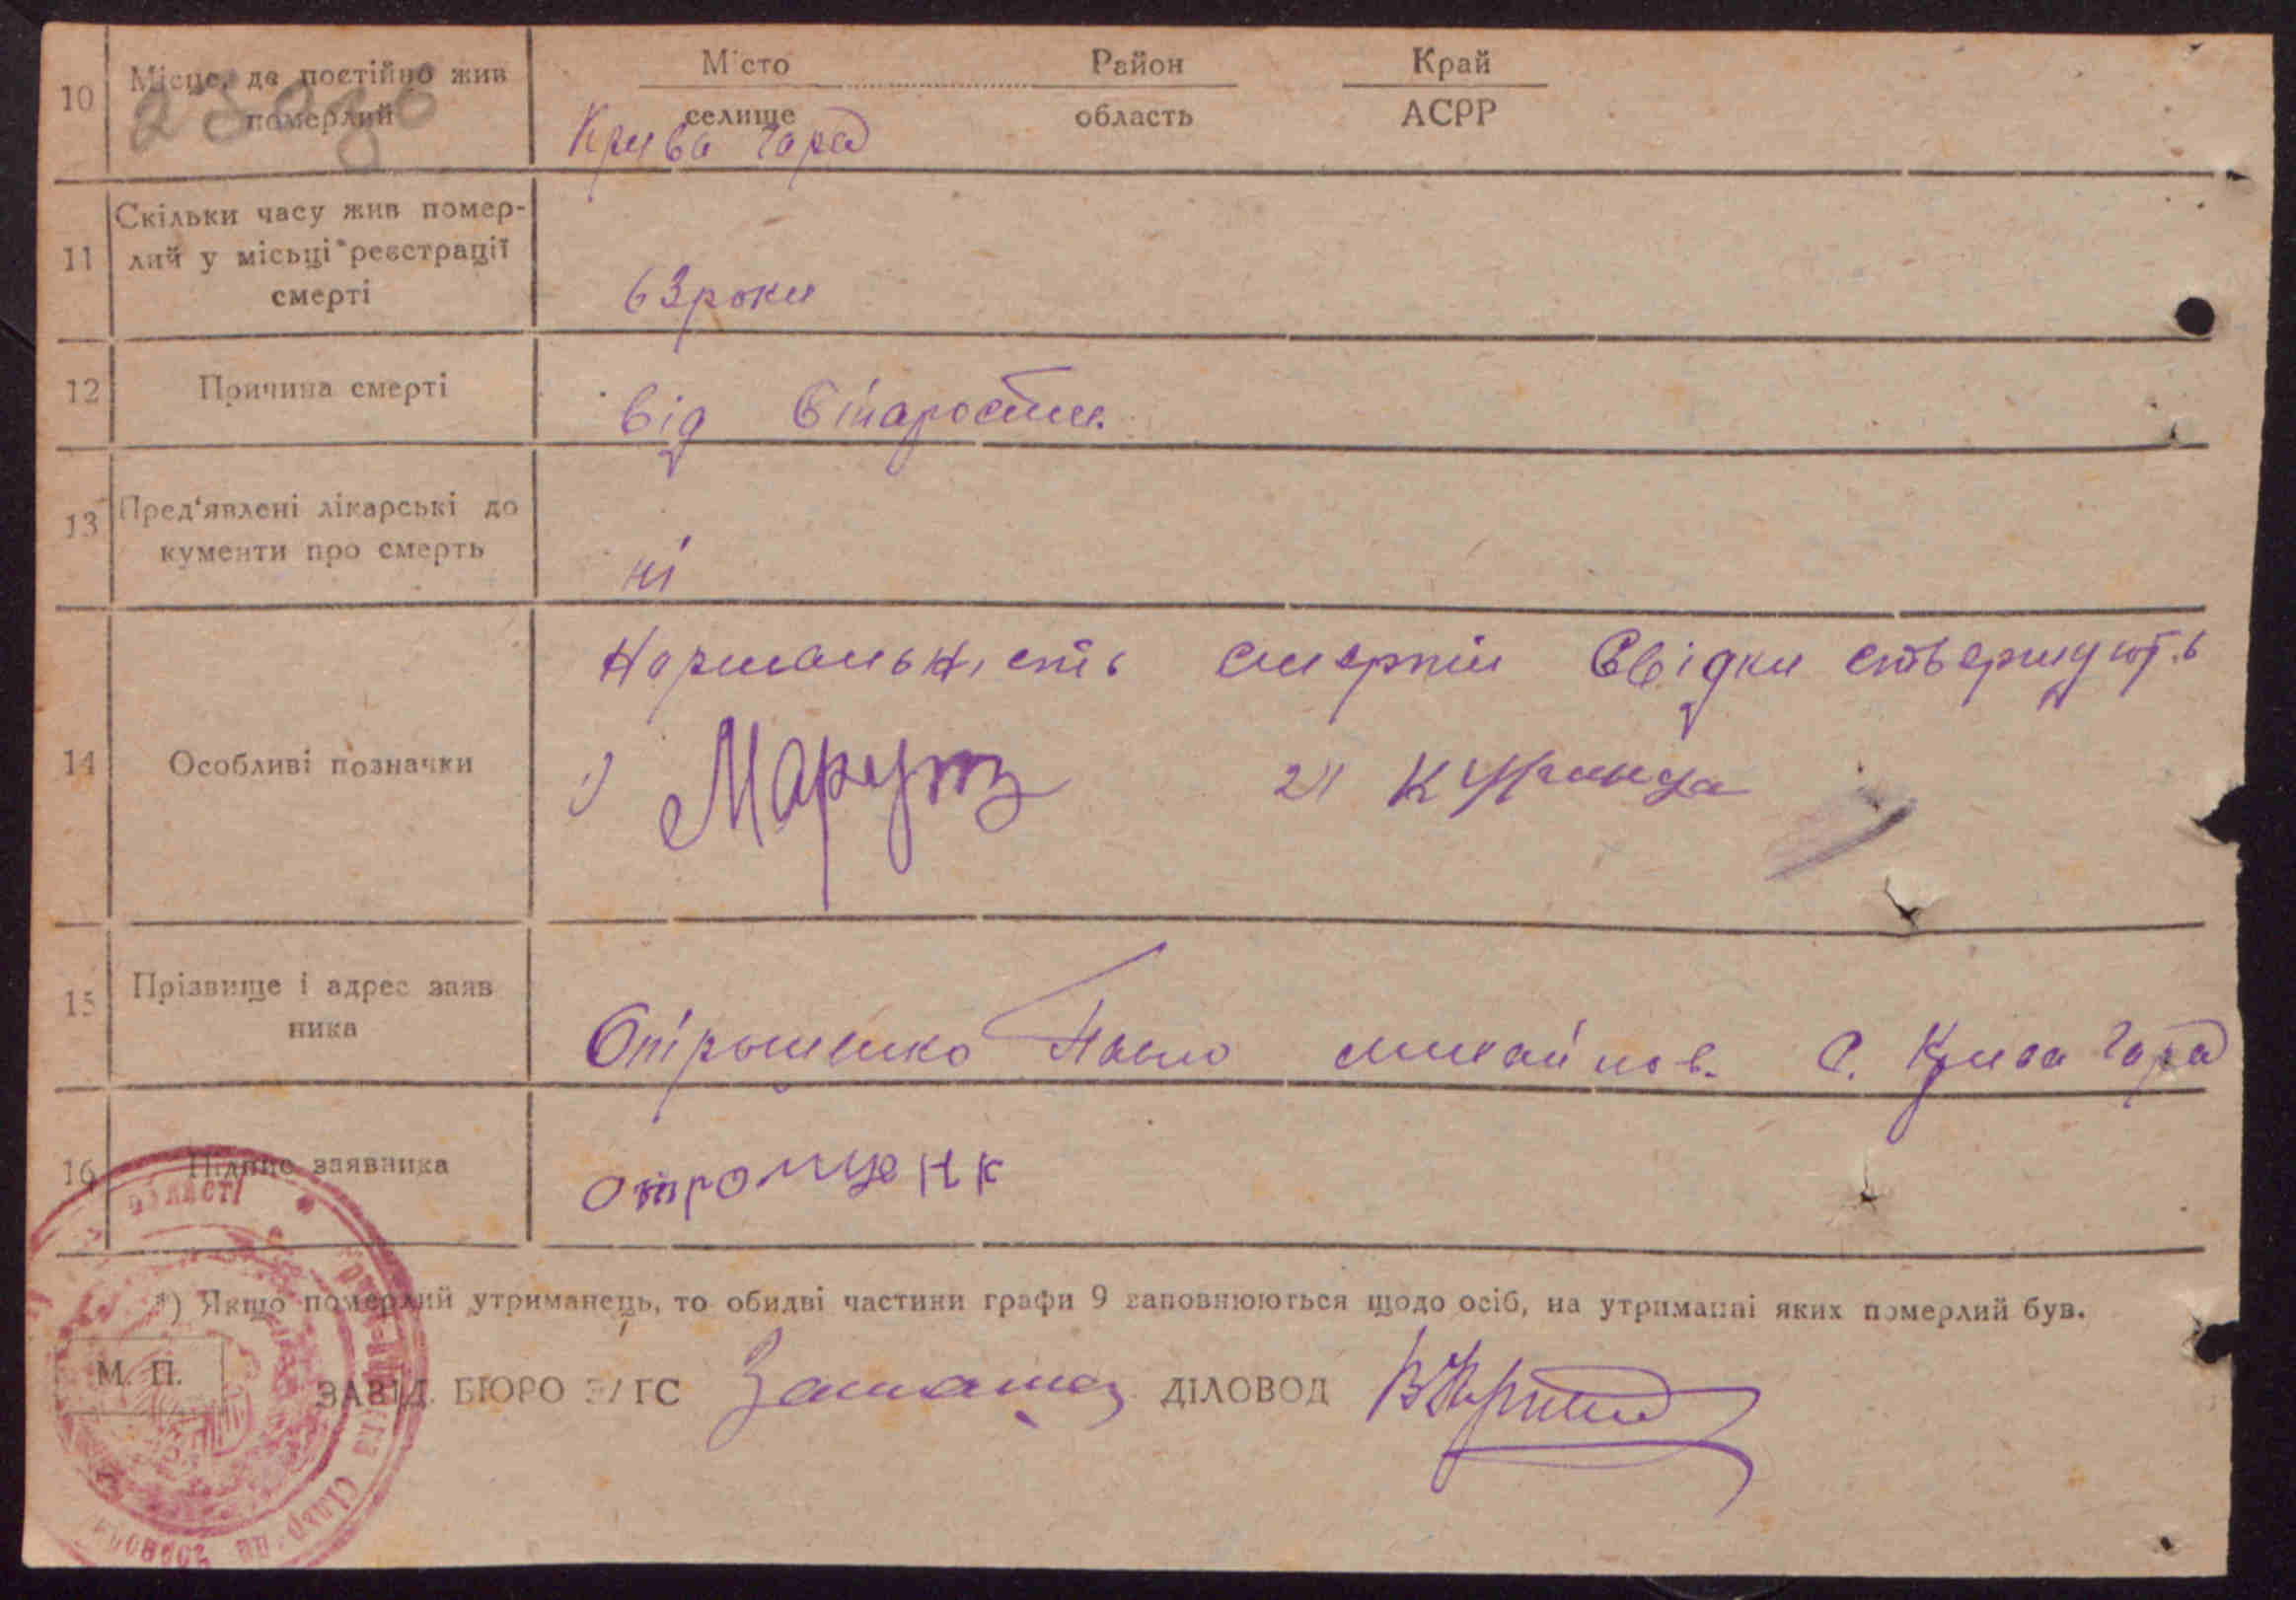 10 Місце, де постійно жив померлий
Місто Район Край
селище область АСРР
Крива гора
11 Скільки часу жив помер-
лий у місьці реєстрації
смерті
63 роки
12 Причина смерті
від старости.
13 Пред'явлені лікарські до
кументи про смерть
ні
14 Особливі позначки
Нормальність смерти свідки ствержують
1)
2)
15 Прізвище і адрес заяв
ника
Павло С. Крива гора
16 Підпис заявника
отрощенк
*) Якщо померлий утриманець, то обидві частини графи 9 заповнюються щодо осіб, на утриманні яких померлий був.
М. П.
ЗАВІД. БЮРО ЗАГС ДІЛОВОД